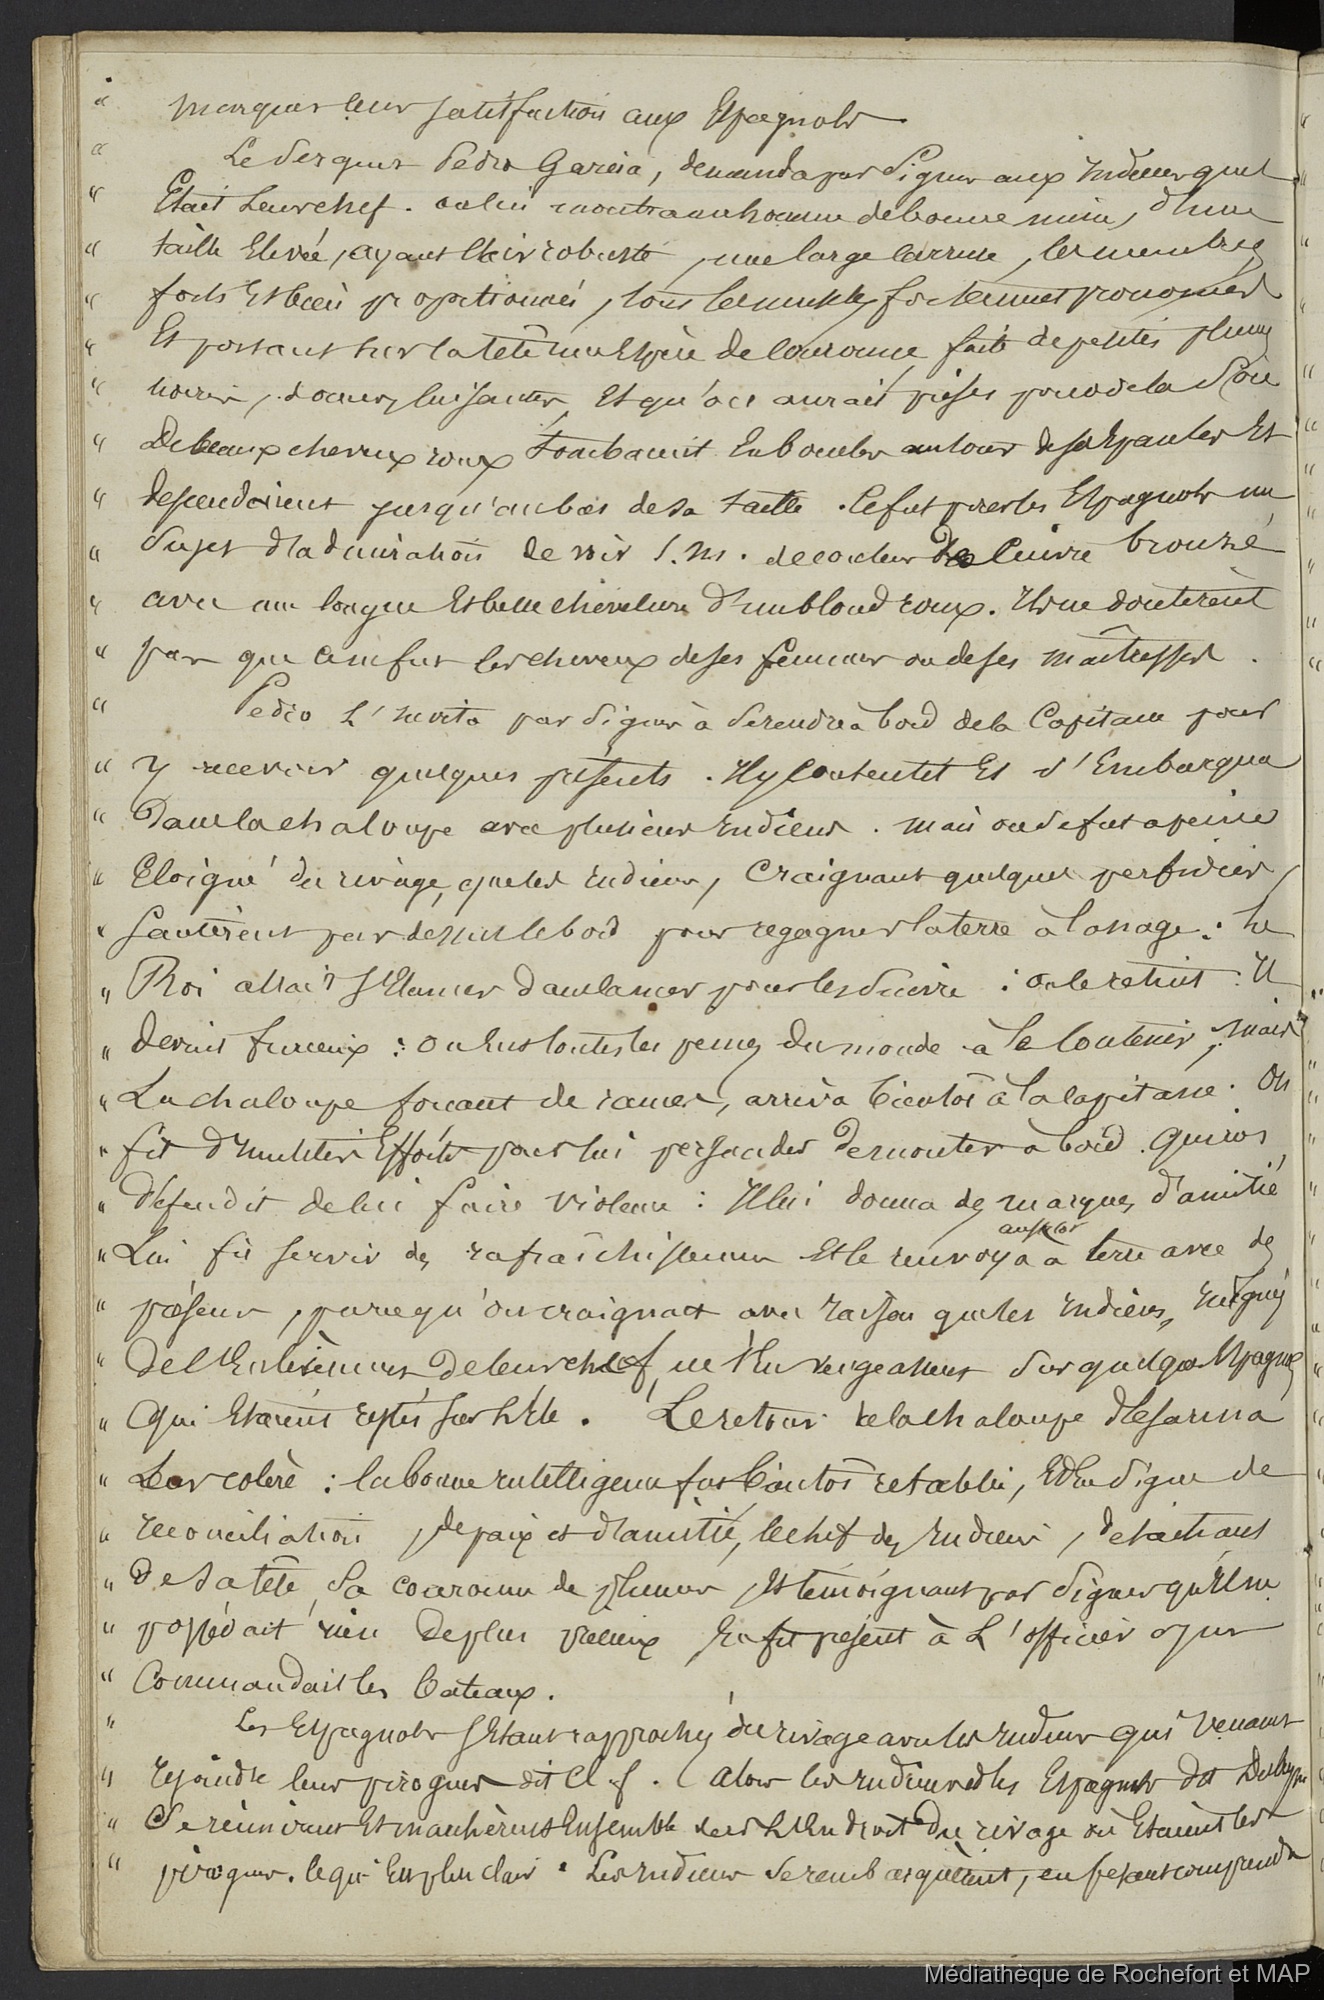 " marquer leur satisfaction aux Espagnols
" Le Sergent Pedro Garcia, demanda par Signes aux indiens quel
" Etait Leur chef. on lui montra un homme de bonne mine, d'une
" taille Elevée, ayant l'air robuste, une large carrure, les membres
" forts Et bien proportionnés, tous les muscles fortement prononcés
" Et portant sur la tête une Espèce de couronne faite de petites plumes
" noires, douces, luisantes, Et qu'on aurait prises pour de la Soie
" De beaux cheveux roux tombaient En boucles autour de ses Epaules Et
" descendaient jusqu'au bas de sa taille. Ce fut pour les Espagnols un
" Sujet d'admiration de voir S. M. de couleur de Cuivre bronzé
" avec une longue Et belle chevelure d'un blond roux. Ils ne doutèrent
" pas que ce ne fut les cheveux de ses femmes ou de ses maîtresses.
" Pedro L'invita par Signes à Se rendre à bord de la Capitane pour
" y recevoir quelques présents. Il y Consentit Et s'Embarqua
" Dans la chaloupe avec plusieurs indiens. mais on se fut a peine
" Eloigné du rivage, que les indiens, Craignant quelques perfidies,
" Sautèrent par dessus le bord pour regagner la terre à la nage: Le
" Roi allait S'Elancer dans la mer pour les Suivre: on le retint: Il
" devint furieux: on Eut toutes les peines du monde à le Contenir, mais
" La chaloupe forçant de rames, arriva bientôt à la capitane. On
" fit d'inutiles Efforts pour lui persuader De monter à bord. Quiros
" Défendit de lui faire violence: Il lui donna des marques d'amitié
" Lui fit Servir des rafraîchissemens Et le renvoya aussitôt à terre avec des
" présens, parce qu'on craignait avec raison que les indiens, indignés
" De l'Enlèvement De leur chef, ne S'En vengeassent Sur quelques Espagnols
" Qui Etaient restés Sur L'Ile. Le retour de la chaloupe désarma
" Leur colère: la bonne intelligence fut bientôt retablie, Et En Signe de
" reconciliation, de paix et d'amitié, le chef des Indiens, détachant
" De Sa tête Sa couronne de plumes, Et témoignant par Signes qu'Il ne
" possédait rien De plus précieux En fit présent à L'officier qui
" Commandait les bateaux.
" Les Espagnols S'Etant rapprochés du rivage avec les Indiens qui Venaient
" rejoindre leurs pirogues dit Cl. f. (Alors les indiens et les Espagnols dit
" Se réunirent Et marchèrent Ensemble vers L'Endroit Du rivage où Etaient les
" pirogues. ce qui Est plus clair. Les indiens Se rembarquèrent, en fesant comprendre
Médiathèque de Rochefort et MAP